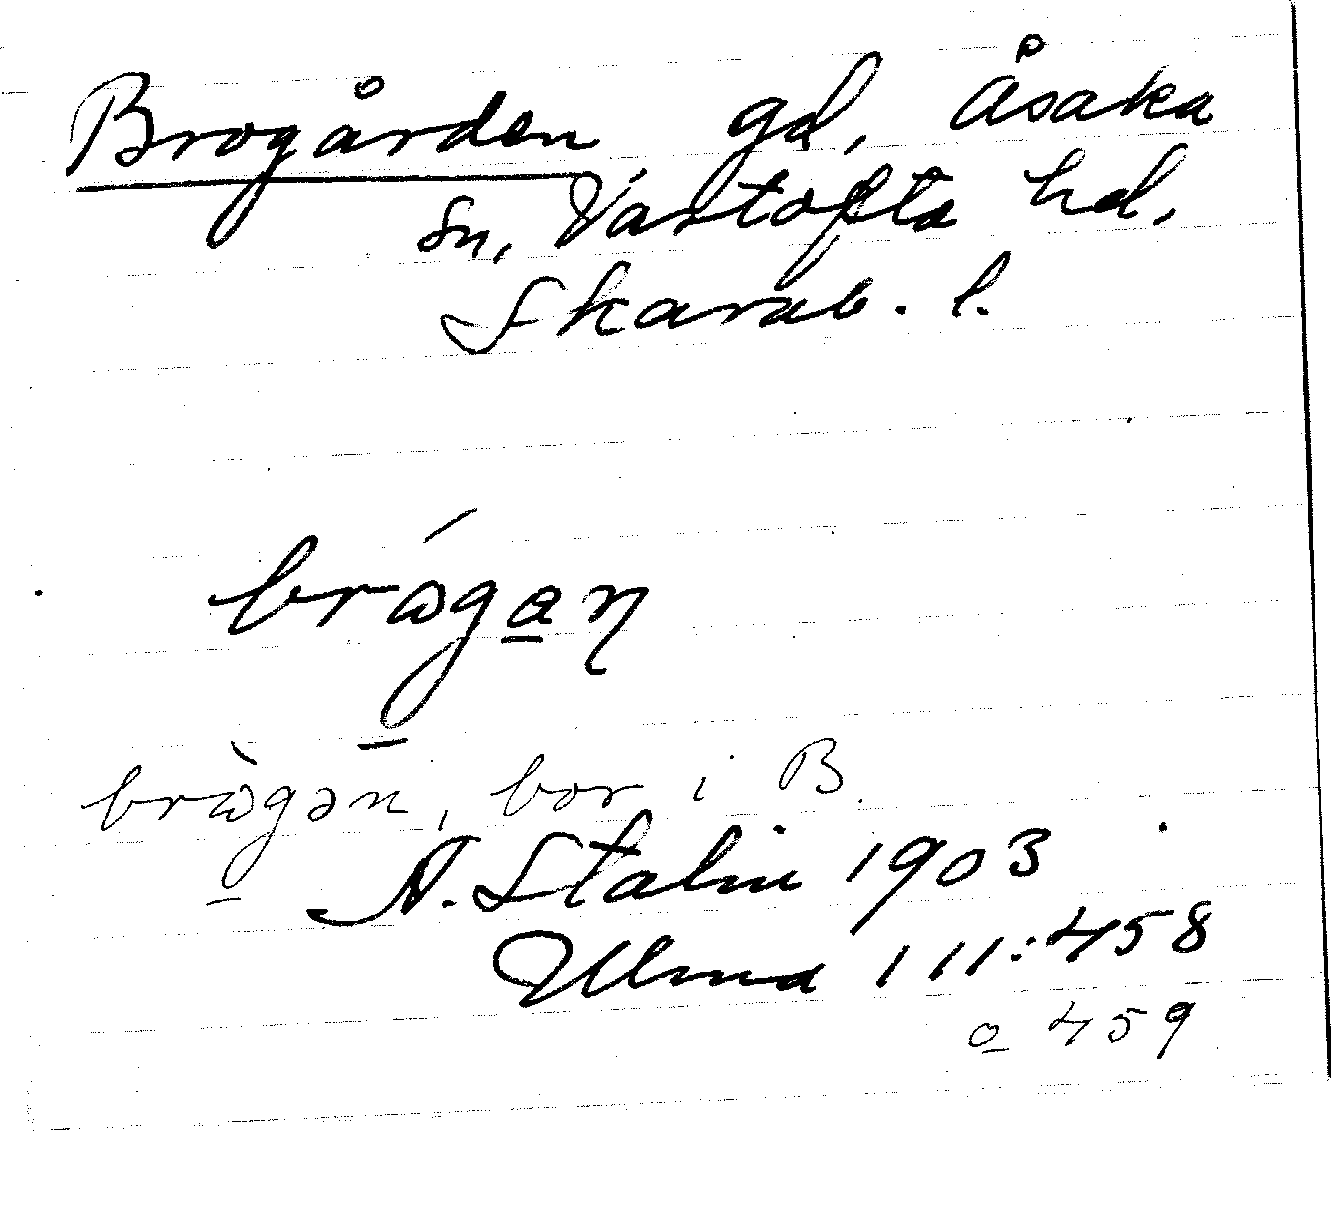 Brogården, gd, Åsaka
sn, Vartofta hd,
Skarab. l.
brωgan
brωgən, bor i B.
A. Stalin 1903
Ulma 111:458
o 459